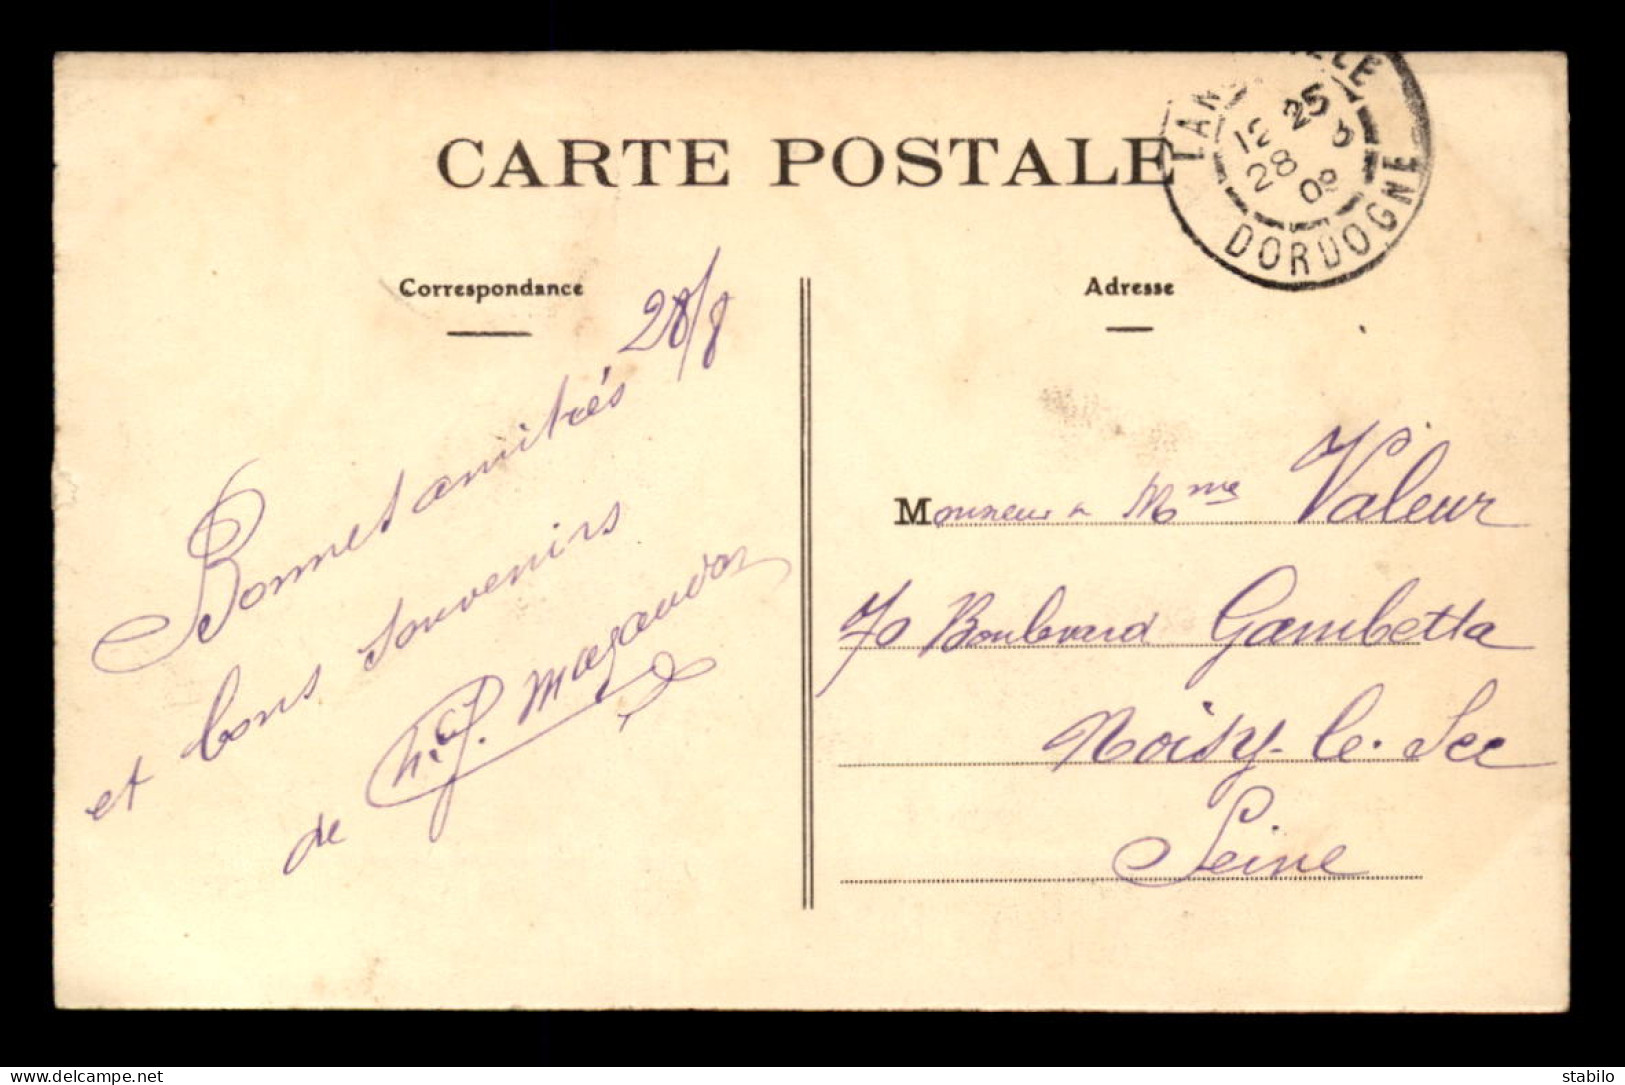 CARTE POSTALE
DORDOGNE
12 25
28 8
08
Correspondance
Adresse
28/8
Bonnes amitiés
et bons souvenirs
de
Monsieur & Mme Valeur
70 Boulevard Gambetta
Noisy-le-Sec
Seine
delcampe.net
stabilo